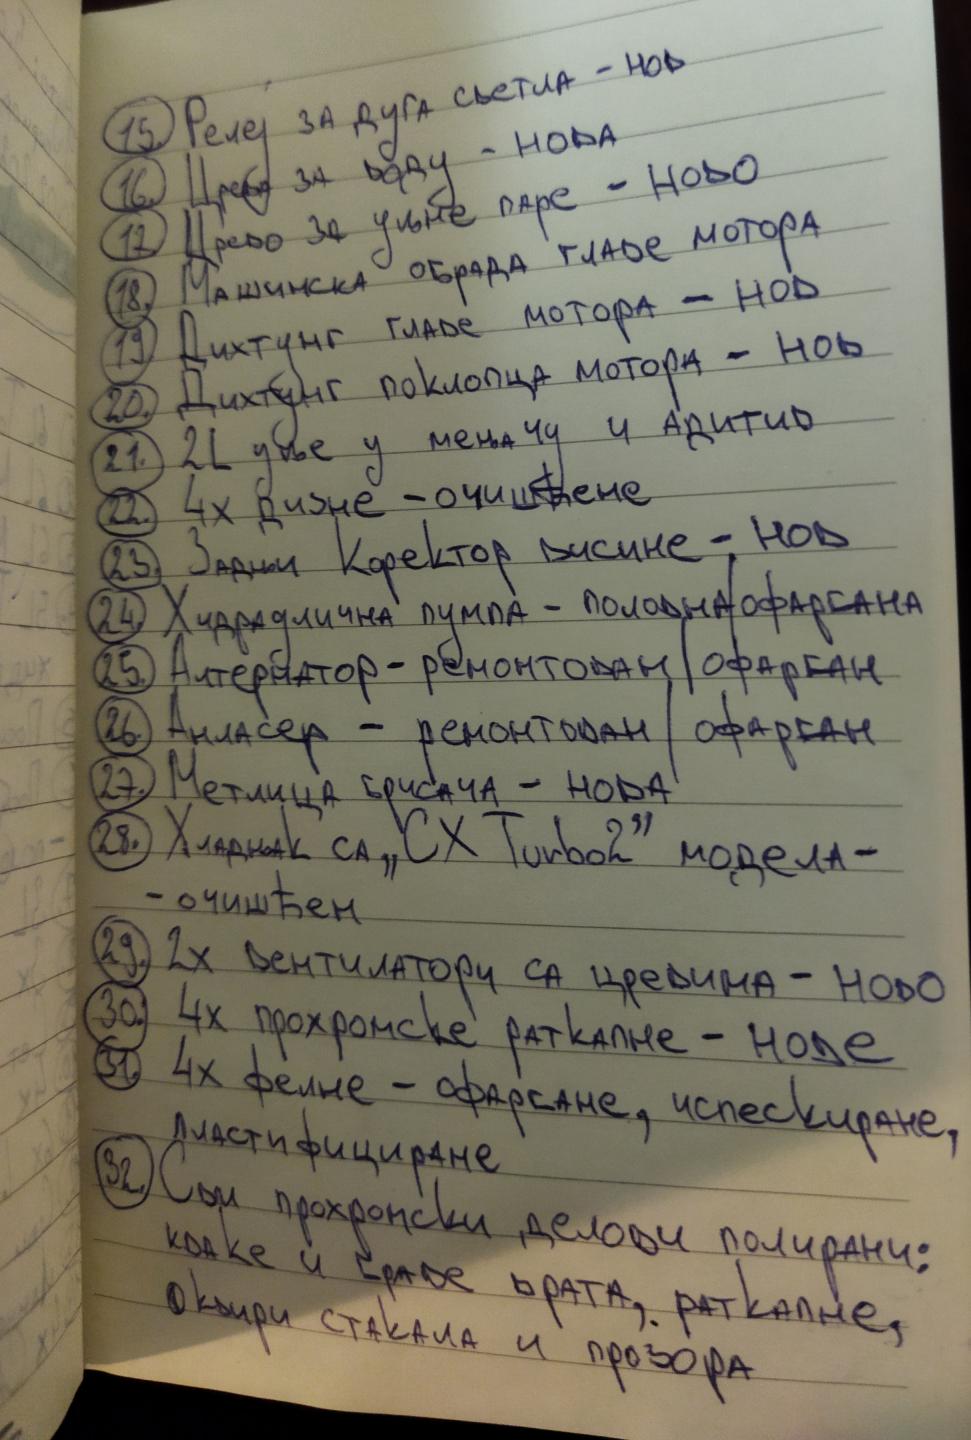 15. Релеј за дуга светла - нов
16. Црево за воду - нова
17. Црево за уљне паре - ново
18. Машинска обрада главе мотора
19. Дихтунг главе мотора - нов
20. Дихтунг поклопца мотора - нов
21. 2L уље у мењачу и адитив
22. 4x дизне - очишћене
23. Задњи коректор висине - нов
24. Хидраулична пумпа - половна/офарбана
25. Алтернатор - ремонтован/офарбан
26. Анласер - ремонтован/офарбан
27. Метлица брисача - нова
28. Хладњак са „CX Turbo2” модела -
- очишћен
29. 2x вентилатори са цревима - ново
30. 4x прохромске раткапне - нове
31. 4x фелне - офарбане, испескиране,
пластифициране
32. Сви прохромски делови полирани:
кваке и браве врата, раткапне,
оквири стакала и прозора